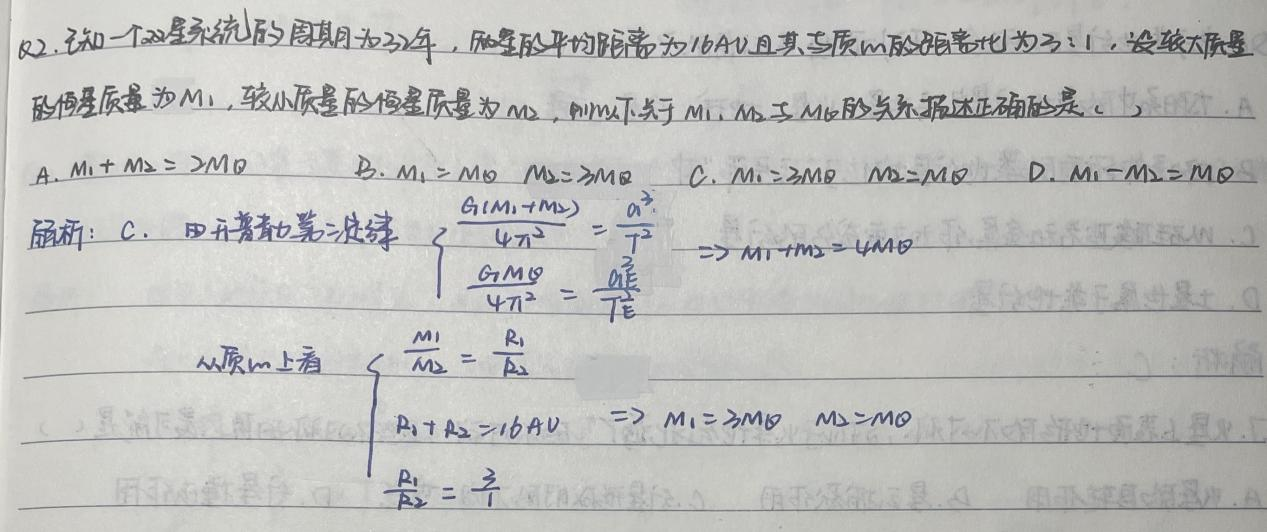 Q2. 已知一个双星系统的周期为32年，两星的平均距离为16AU且其与质心的距离比为3:1，设较大质量
的恒星质量为M₁，较小质量的恒星质量为M₂，则以下关于M₁、M₂与M⊙的关系描述正确的是（ ）
A. M₁+M₂=2M⊙ B. M₁=M⊙ M₂=3M⊙ C. M₁=3M⊙ M₂=M⊙ D. M₁-M₂=M⊙
解析：C. 由开普勒第三定律 { G(M₁+M₂)/4π² = a³/T²
GM⊙/4π² = a_E³/T_E² => M₁+M₂=4M⊙
从质心上看 { M₁/M₂ = R₁/R₂
R₁+R₂=16AU => M₁=3M⊙ M₂=M⊙
R₁/R₂ = 3/1